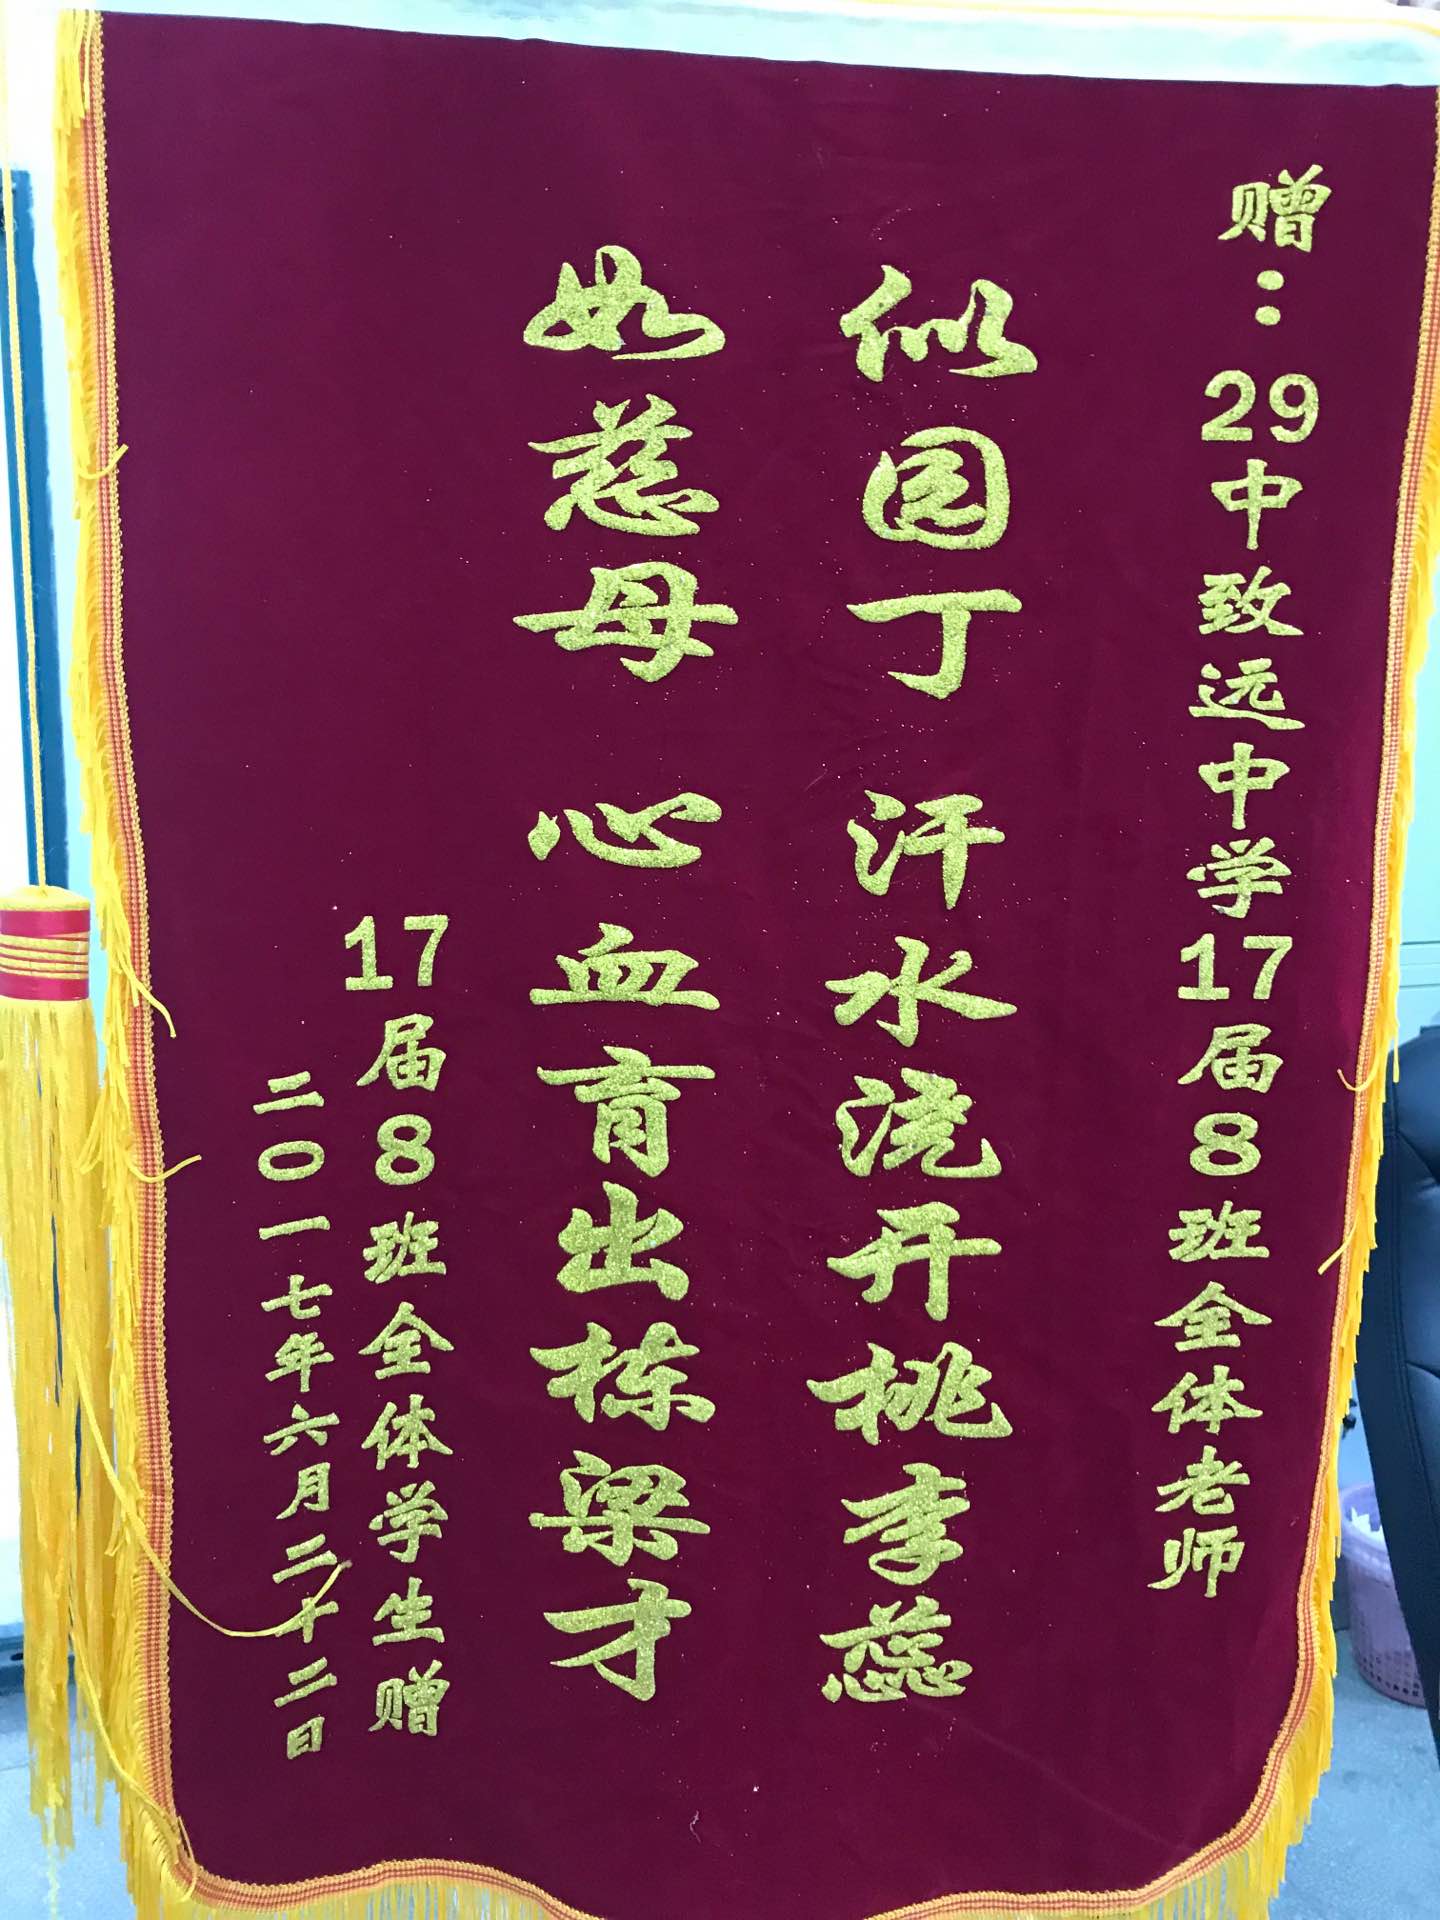 赠：29中致远中学17届8班全体老师
似园丁 汗水浇开桃李蕊
如慈母 心血育出栋梁才
17届8班全体学生赠
二〇一七年六月二十二日